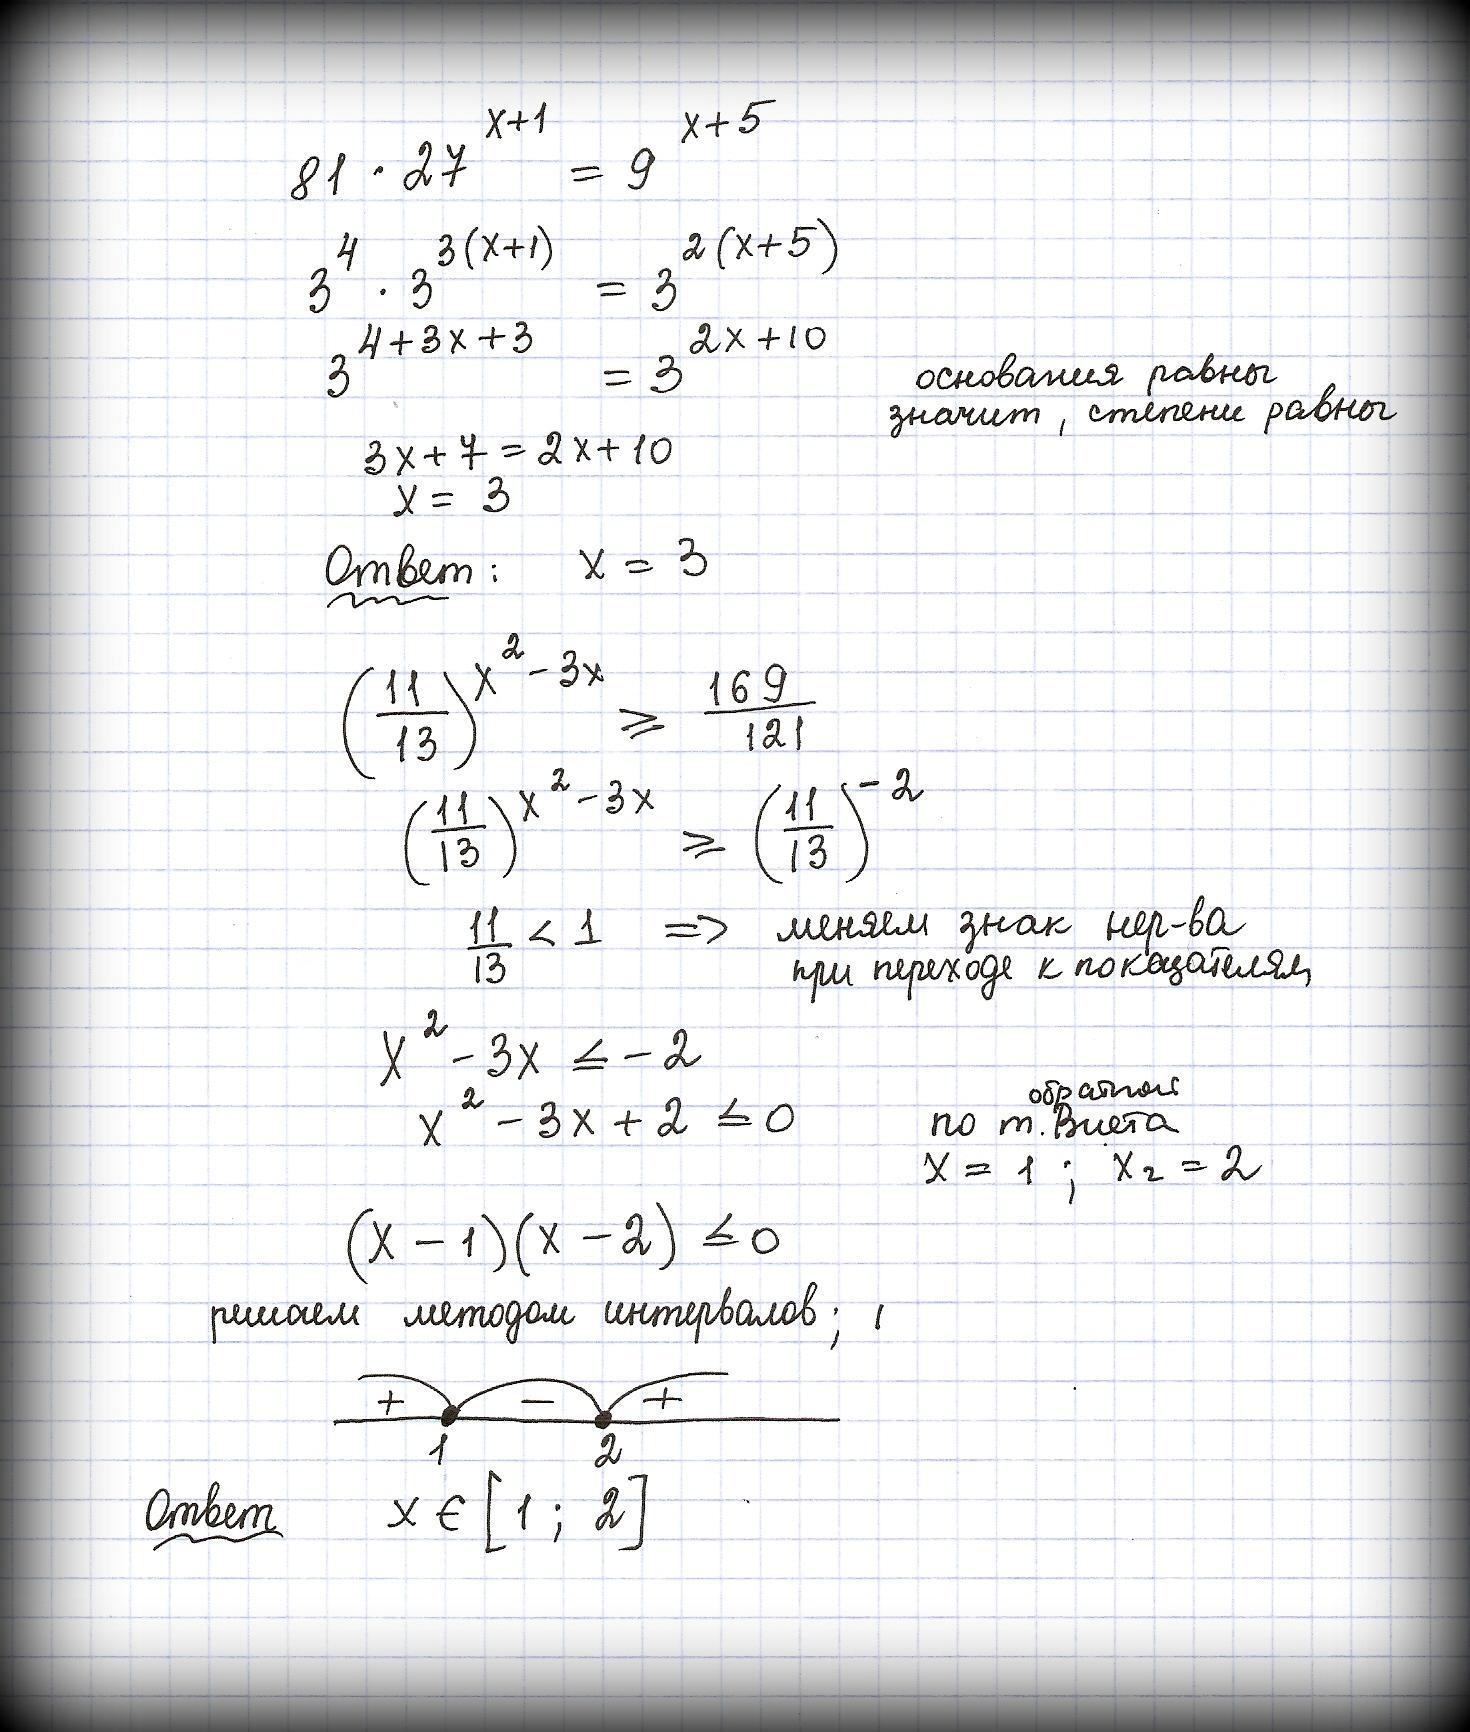 81 · 27^(x+1) = 9^(x+5)
3^4 · 3^(3(x+1)) = 3^(2(x+5))
3^(4+3x+3) = 3^(2x+10)
основания равны
значит, степени равны
3x+7 = 2x+10
x = 3
Ответ: x = 3
(11/13)^(x²-3x) ⩾ 169/121
(11/13)^(x²-3x) ⩾ (11/13)^(-2)
11/13 < 1 => меняем знак нер-ва
при переходе к показателям
x² - 3x ≤ -2
x² - 3x + 2 ≤ 0
обратной
по т. Виета
x = 1 ; x₂ = 2
(x - 1)(x - 2) ≤ 0
решаем методом интервалов;
+ − +
1 2
Ответ x ∈ [1 ; 2]